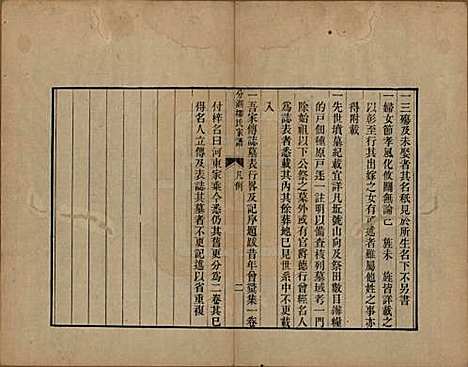 一三殤及未娶者其名秖見於所生名下不另書
一婦女節孝風化攸關無論已 旌未 旌皆詳載之
以彰至行其出嫁之女有可述者雖屬他姓之事亦
得附載
一先世墳墓紀載宜詳凡坵號山向及祭田數目漕糧
的戶佃種原戶逐一註明以備查核列墓域考一門
除始祖以下公祭之墓外或有官爵德行曾經名人
為誌表者悉載其內其餘葬地已見世系中不更載
入
分湖柳氏家譜
凡例
二
一吾宗傳誌墓表行畧及記序題跋昔年曾彙集一卷
付梓名曰河東家乘今悉仍其舊更分為二卷其已
得名人立傳及表誌其墓者不更記述以省重複